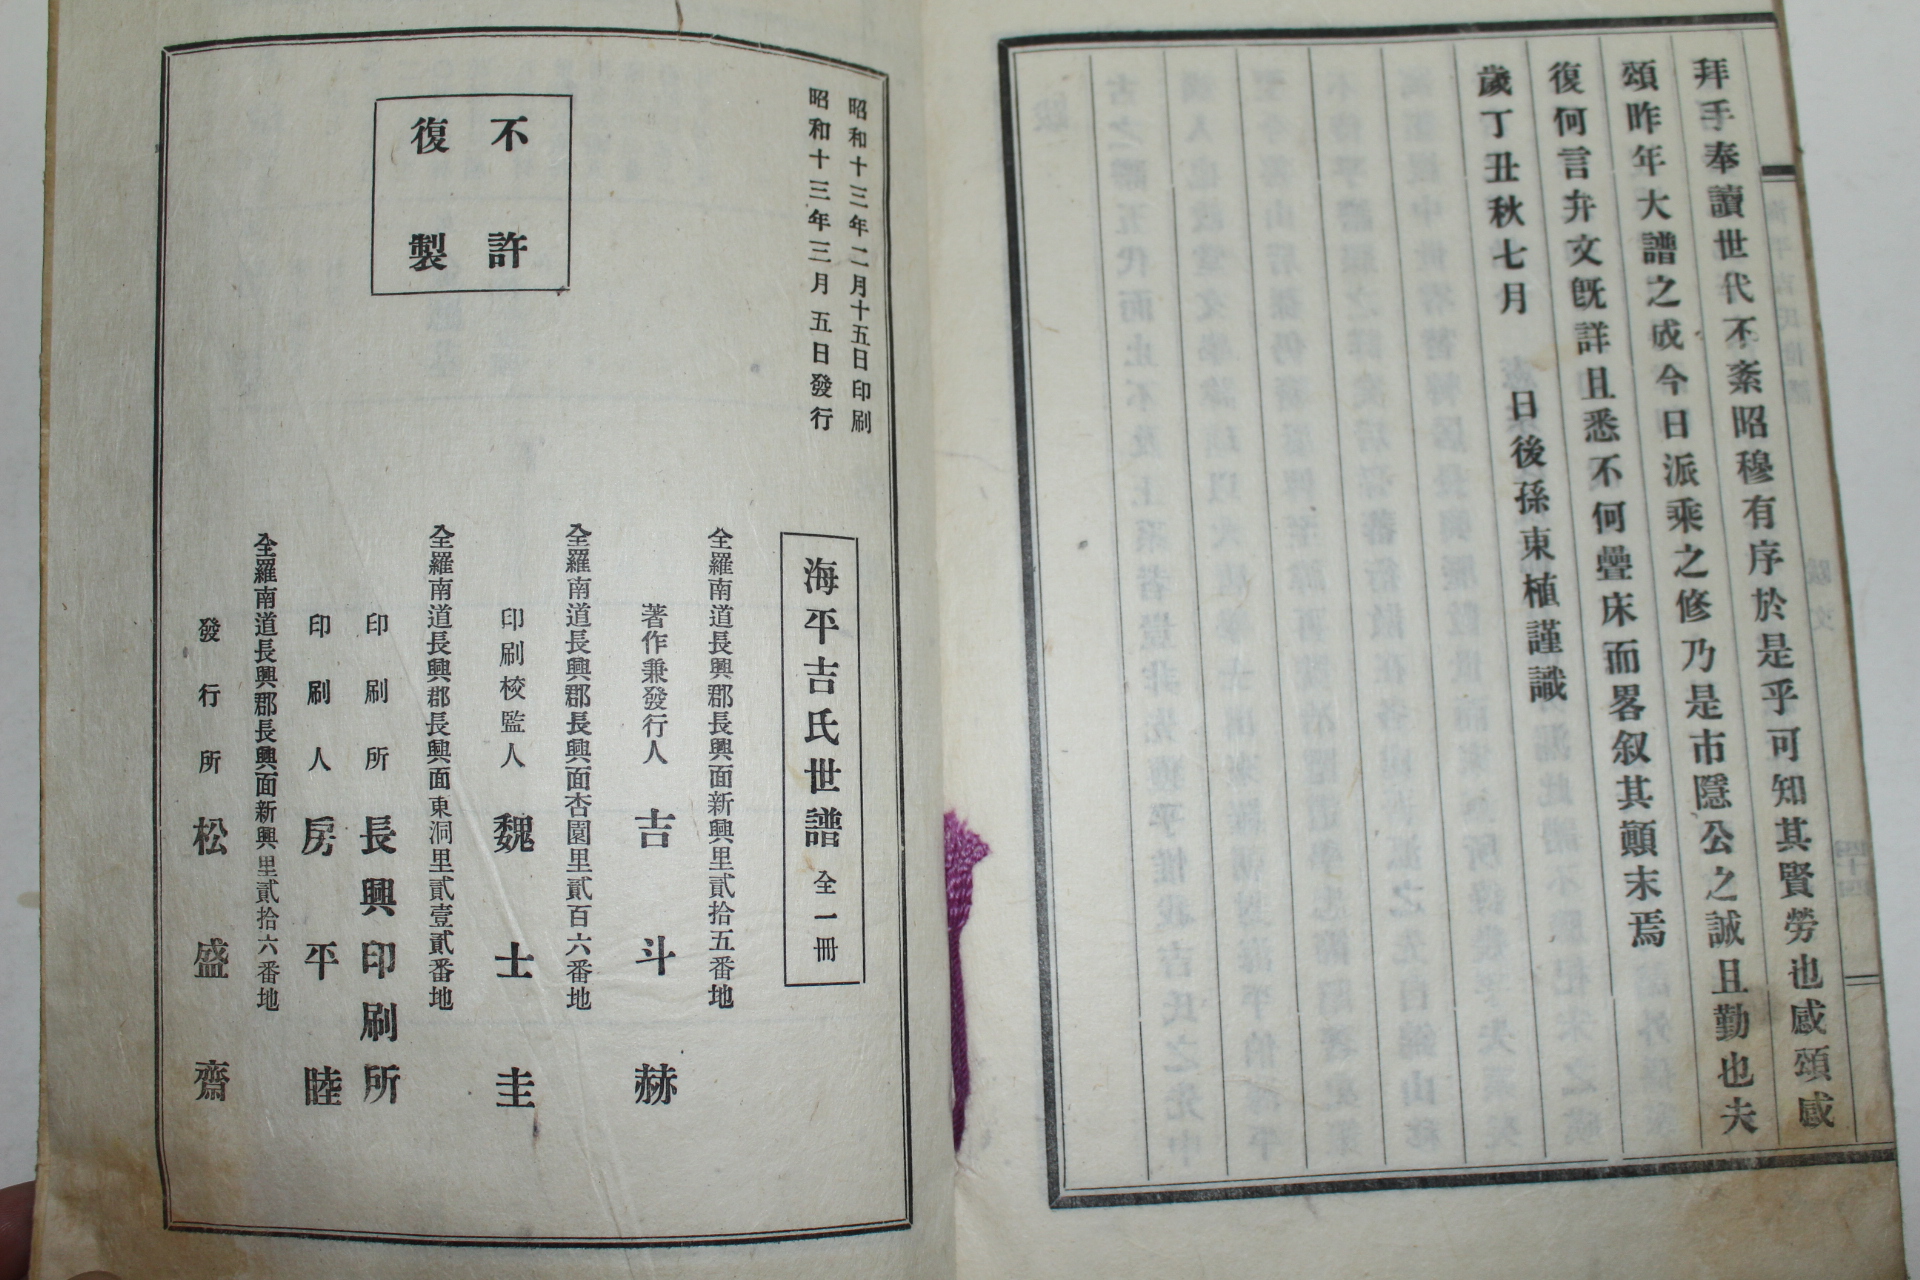 拜手奉讀世代不紊昭穆有序於是乎可知其賢勞也感頌感
頌昨年大譜之成今日派乘之修乃是市隱公之誠且勤也夫
復何言弁文旣詳且悉不何疊床而畧叙其顚末焉
歲丁丑秋七月 日後孫東植謹識
昭和十三年二月十五日印刷
昭和十三年三月五日發行
不許
復製
海平吉氏世譜 全一冊
全羅南道長興郡長興面新興里貳拾五番地
著作兼發行人 吉斗赫
全羅南道長興郡長興面杏園里貳百六番地
印刷校監人 魏士圭
全羅南道長興郡長興面東洞里貳壹貳番地
印刷所 長興印刷所
印刷人 房平陸
全羅南道長興郡長興面新興里貳拾六番地
發行所 松盛齋